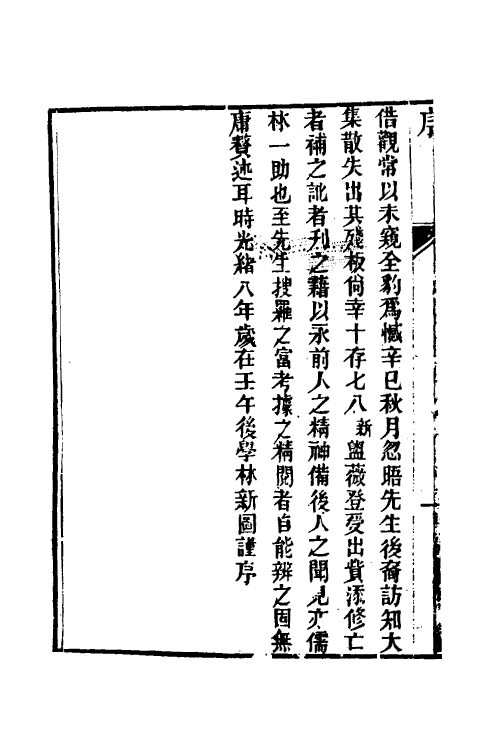 借觀常以未窺全豹為憾辛巳秋月忽晤先生後裔訪知大
集散失出其殘板尙幸十存七八新盥薇登受出貲添修亡
者補之訛者刊之藉以永前人之精神備後人之聞見亦儒
林一助也至先生搜羅之富考據之精閱者自能辨之固無
庸贅述耳時光緒八年歲在壬午後學林新圖謹序